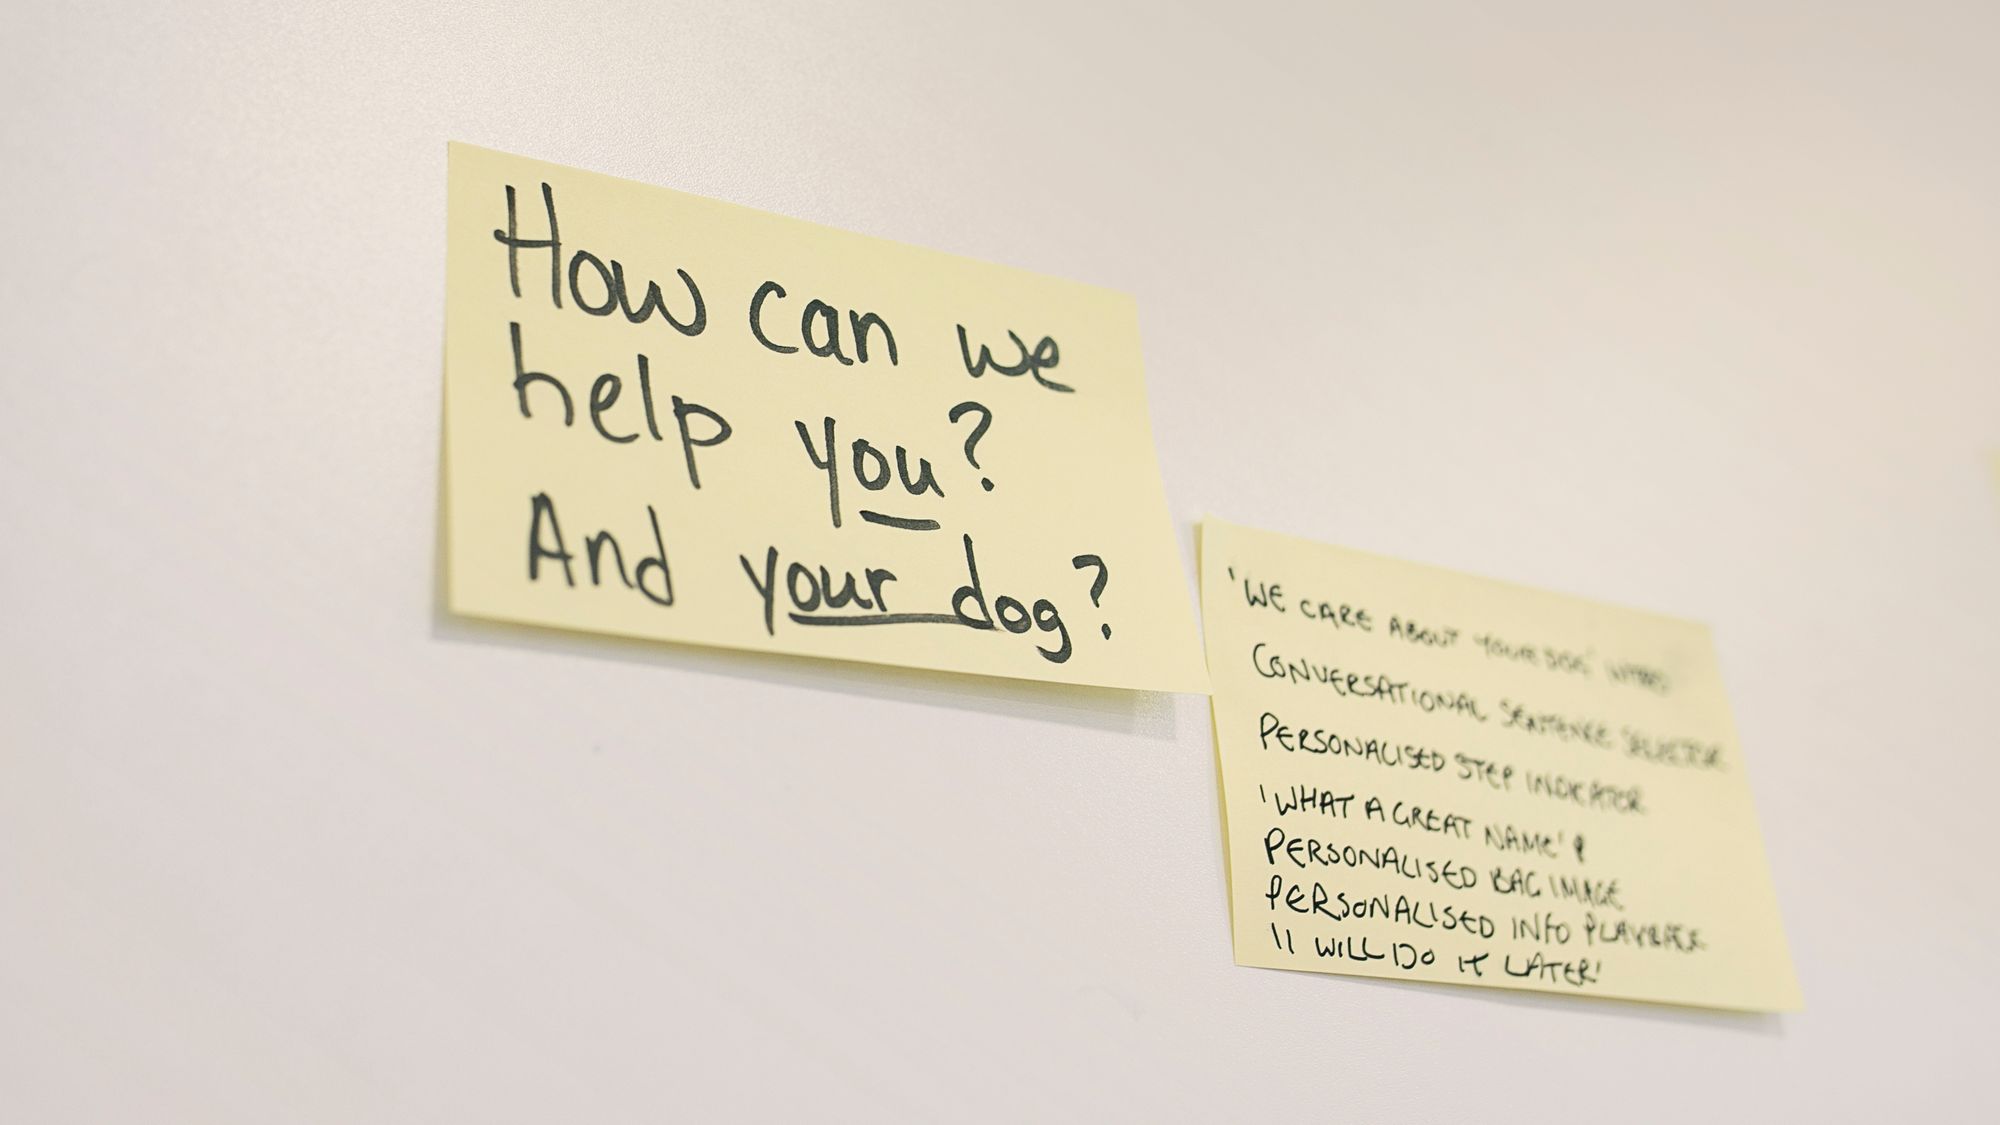 How can we
help you?
And your dog?
'WE CARE ABOUT YOUR DOG' INTRO
CONVERSATIONAL SENTENCE SELECTOR
PERSONALISED STEP INDICATOR
'WHAT A GREAT NAME' &
PERSONALISED BAG IMAGE
PERSONALISED INFO PLAYBACK
'I WILL DO IT LATER'